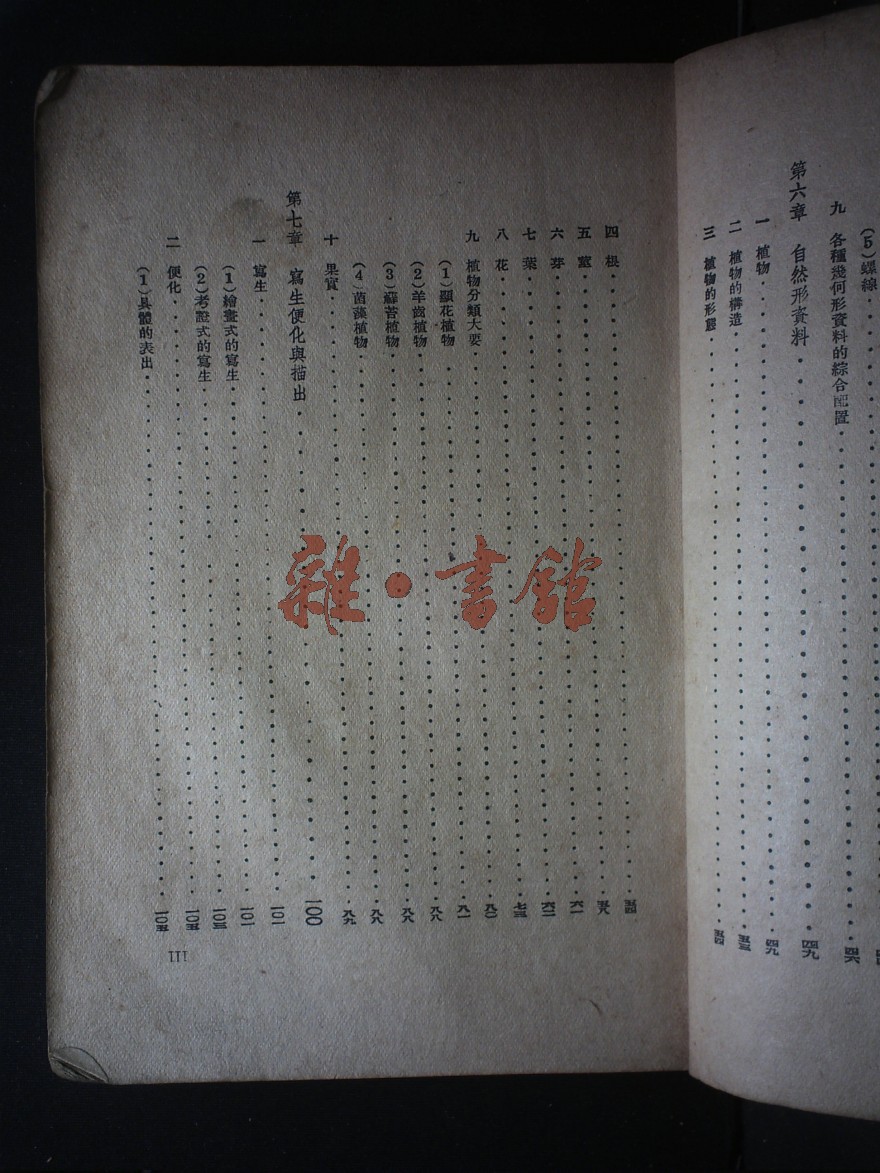 (5)螺線
九 各種幾何形資料的綜合配置 四六
第六章 自然形資料 四九
一 植物 四九
二 植物的構造 五三
三 植物的形態 五四
四 根 五四
五 莖 五八
六 芽 六一
七 葉 六二
八 花 七三
九 植物分類大要 八〇
(1)顯花植物 八一
(2)羊齒植物 八八
(3)蘚苔植物 八八
(4)菌藻植物 八八
十 果實 八九
第七章 寫生便化與描出 一〇〇
一 寫生 一〇一
(1)繪畫式的寫生 一〇一
(2)考證式的寫生 一〇三
二 便化 一〇五
(1)具體的表出 一〇五
III
雜·書館